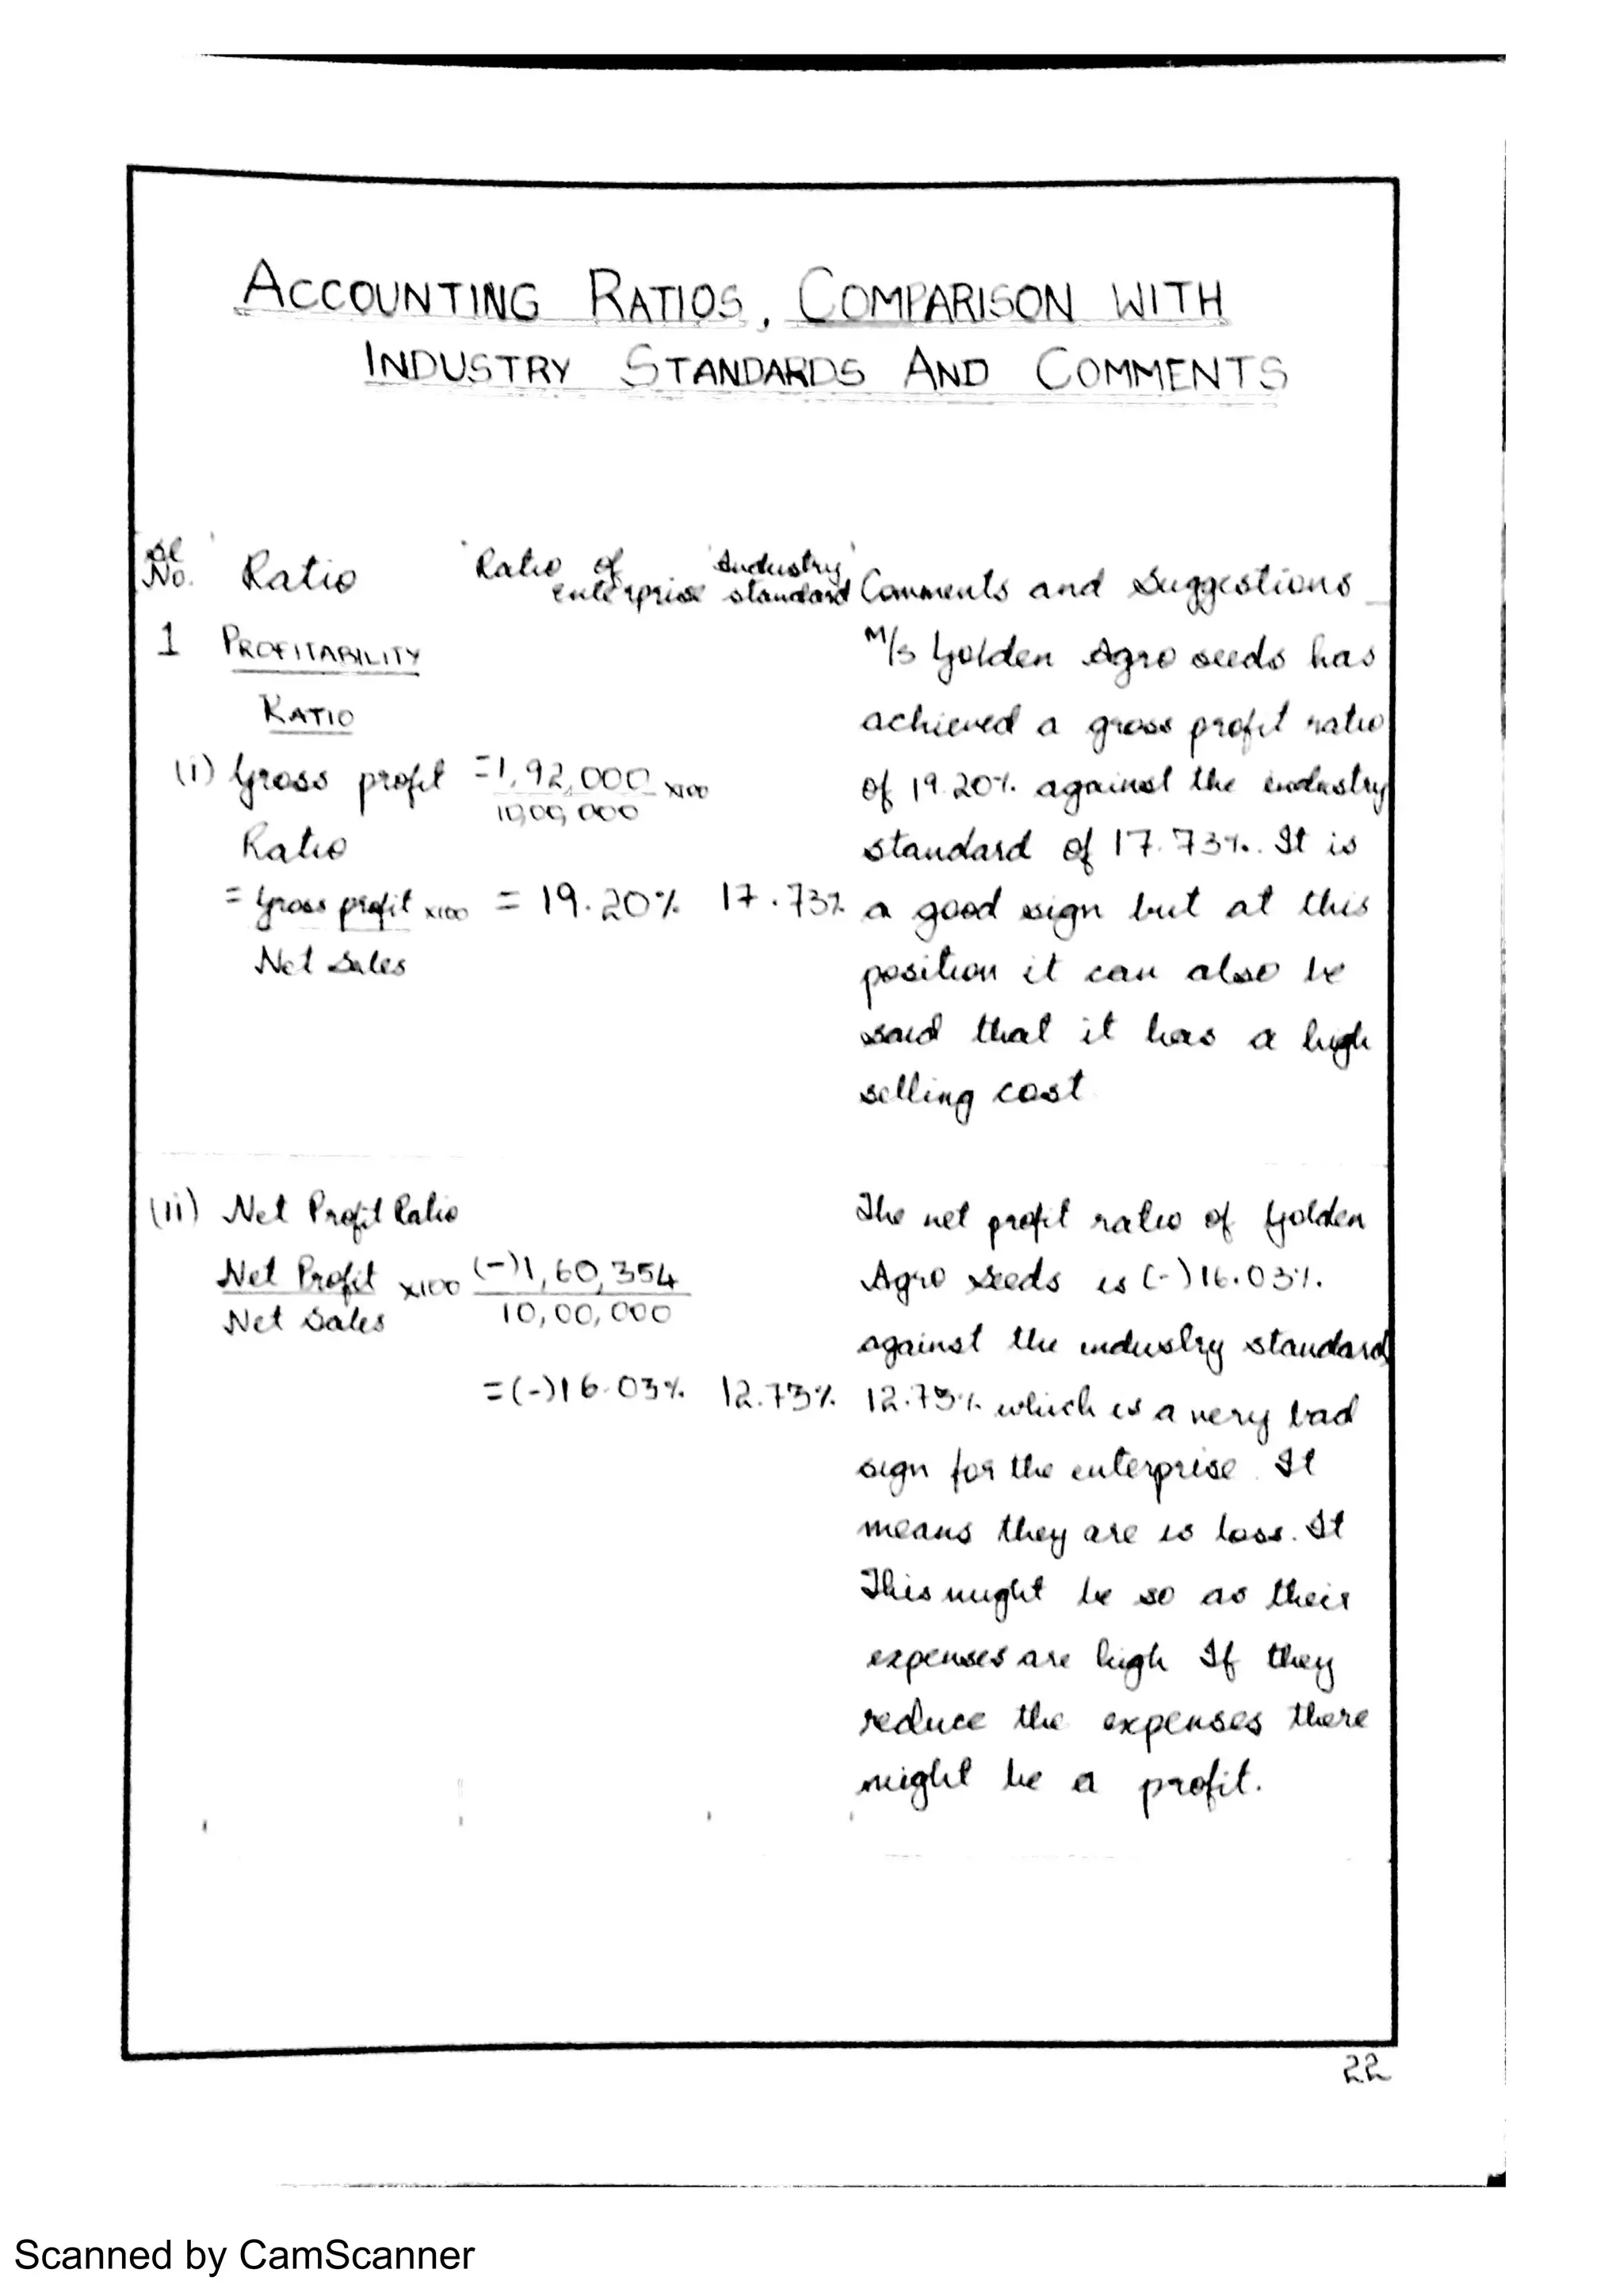 ACCOUNTING RATIOS, COMPARISON WITH
INDUSTRY STANDARDS AND COMMENTS
Sl No. Ratio Ratio of enterprise Industry standard Comments and Suggestions
1 PROFITABILITY
RATIO
(i) Gross profit = 1,92,000 x100
10,00,000
Ratio
= Gross profit x100 = 19.20% 17.73%
Net Sales
M/s Golden Agro seeds has
achieved a gross profit ratio
of 19.20% against the industry
standard of 17.73%. It is
a good sign but at this
position it can also be
said that it has a high
selling cost
(ii) Net Profit Ratio
Net Profit x100 (-)1,60,354
Net Sales 10,00,000
=(-)16.03% 12.73%
The net profit ratio of Golden
Agro Seeds is (-)16.03%.
against the industry standard
12.73% which is a very bad
sign for the enterprise. It
means they are is loss. It
This might be so as their
expenses are high If they
reduce the expenses there
might be a profit.
22
Scanned by CamScanner